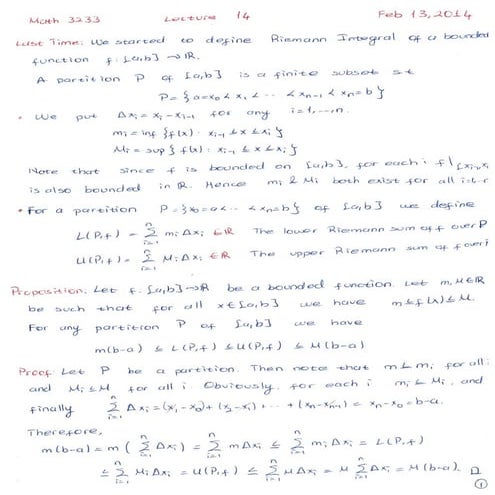 Math 3233 Lecture 14 Feb 13, 2014
Last Time: We started to define Riemann Integral of a bounded
function f: [a,b] → ℝ.
A partition P of [a,b] is a finite subset s.t
P = {a = x₀ < x₁ < ... < xₙ₋₁ < xₙ = b}
• We put Δxᵢ = xᵢ - xᵢ₋₁ for any i = 1,...,n.
mᵢ = inf {f(x) : xᵢ₋₁ ≤ x ≤ xᵢ}
Mᵢ = sup {f(x) : xᵢ₋₁ ≤ x ≤ xᵢ}
Note that since f is bounded on [a,b], for each i f|[xᵢ₋₁,xᵢ
is also bounded in ℝ. Hence mᵢ & Mᵢ both exist for all
• For a partition P = {x₀ = a < ... < xₙ = b} of [a,b] we define
L(P,f) = ∑ᵢ₌₁ⁿ mᵢ Δxᵢ ∈ ℝ The lower Riemann sum of f over P
U(P,f) = ∑ᵢ₌₁ⁿ Mᵢ Δxᵢ ∈ ℝ The upper Riemann sum of f over
Proposition: Let f: [a,b] → ℝ be a bounded function. Let m, M ∈ ℝ
be such that for all x ∈ [a,b] we have m ≤ f(x) ≤ M.
For any partition P of [a,b] we have
m(b-a) ≤ L(P,f) ≤ U(P,f) ≤ M(b-a)
Proof: Let P be a partition. Then note that m ≤ mᵢ for all i
and Mᵢ ≤ M for all i. Obviously, for each i mᵢ ≤ Mᵢ, and
finally ∑ᵢ₌₁ⁿ Δxᵢ = (x₁ - x₀) + (x₂ - x₁) + ... + (xₙ - xₙ₋₁) = xₙ - x₀ = b-a.
Therefore,
m(b-a) = m (∑ᵢ₌₁ⁿ Δxᵢ) = ∑ᵢ₌₁ⁿ m Δxᵢ ≤ ∑ᵢ₌₁ⁿ mᵢ Δxᵢ = L(P,f)
≤ ∑ᵢ₌₁ⁿ Mᵢ Δxᵢ = U(P,f) ≤ ∑ᵢ₌₁ⁿ M Δxᵢ = M ∑ᵢ₌₁ⁿ Δxᵢ = M(b-a). □
1